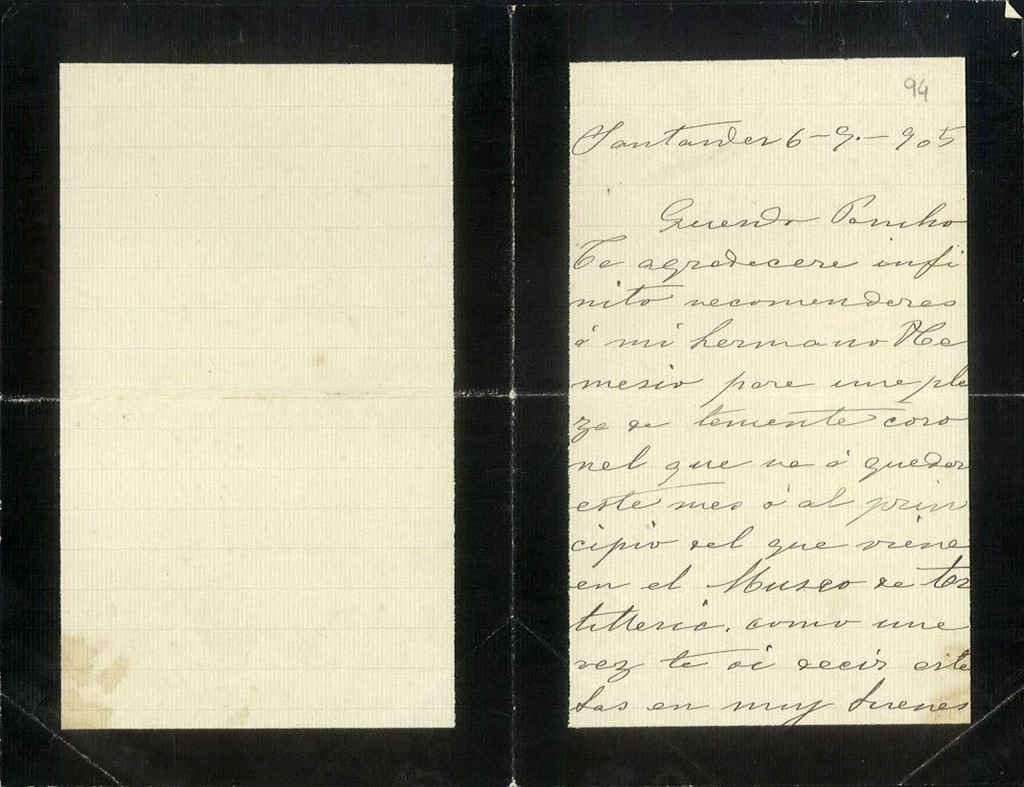 94
Santander 6-9.-905
Querido Pancho
Te agradecere infi
nito recomendares
á mi hermano Ne
mesio para una pla
za de teniente coro
nel que va á quedar
este mes ó al prin
cipio del que viene
en el Museo de Ar
tilleria. como una
vez te oi decir esta
bas en muy buenas